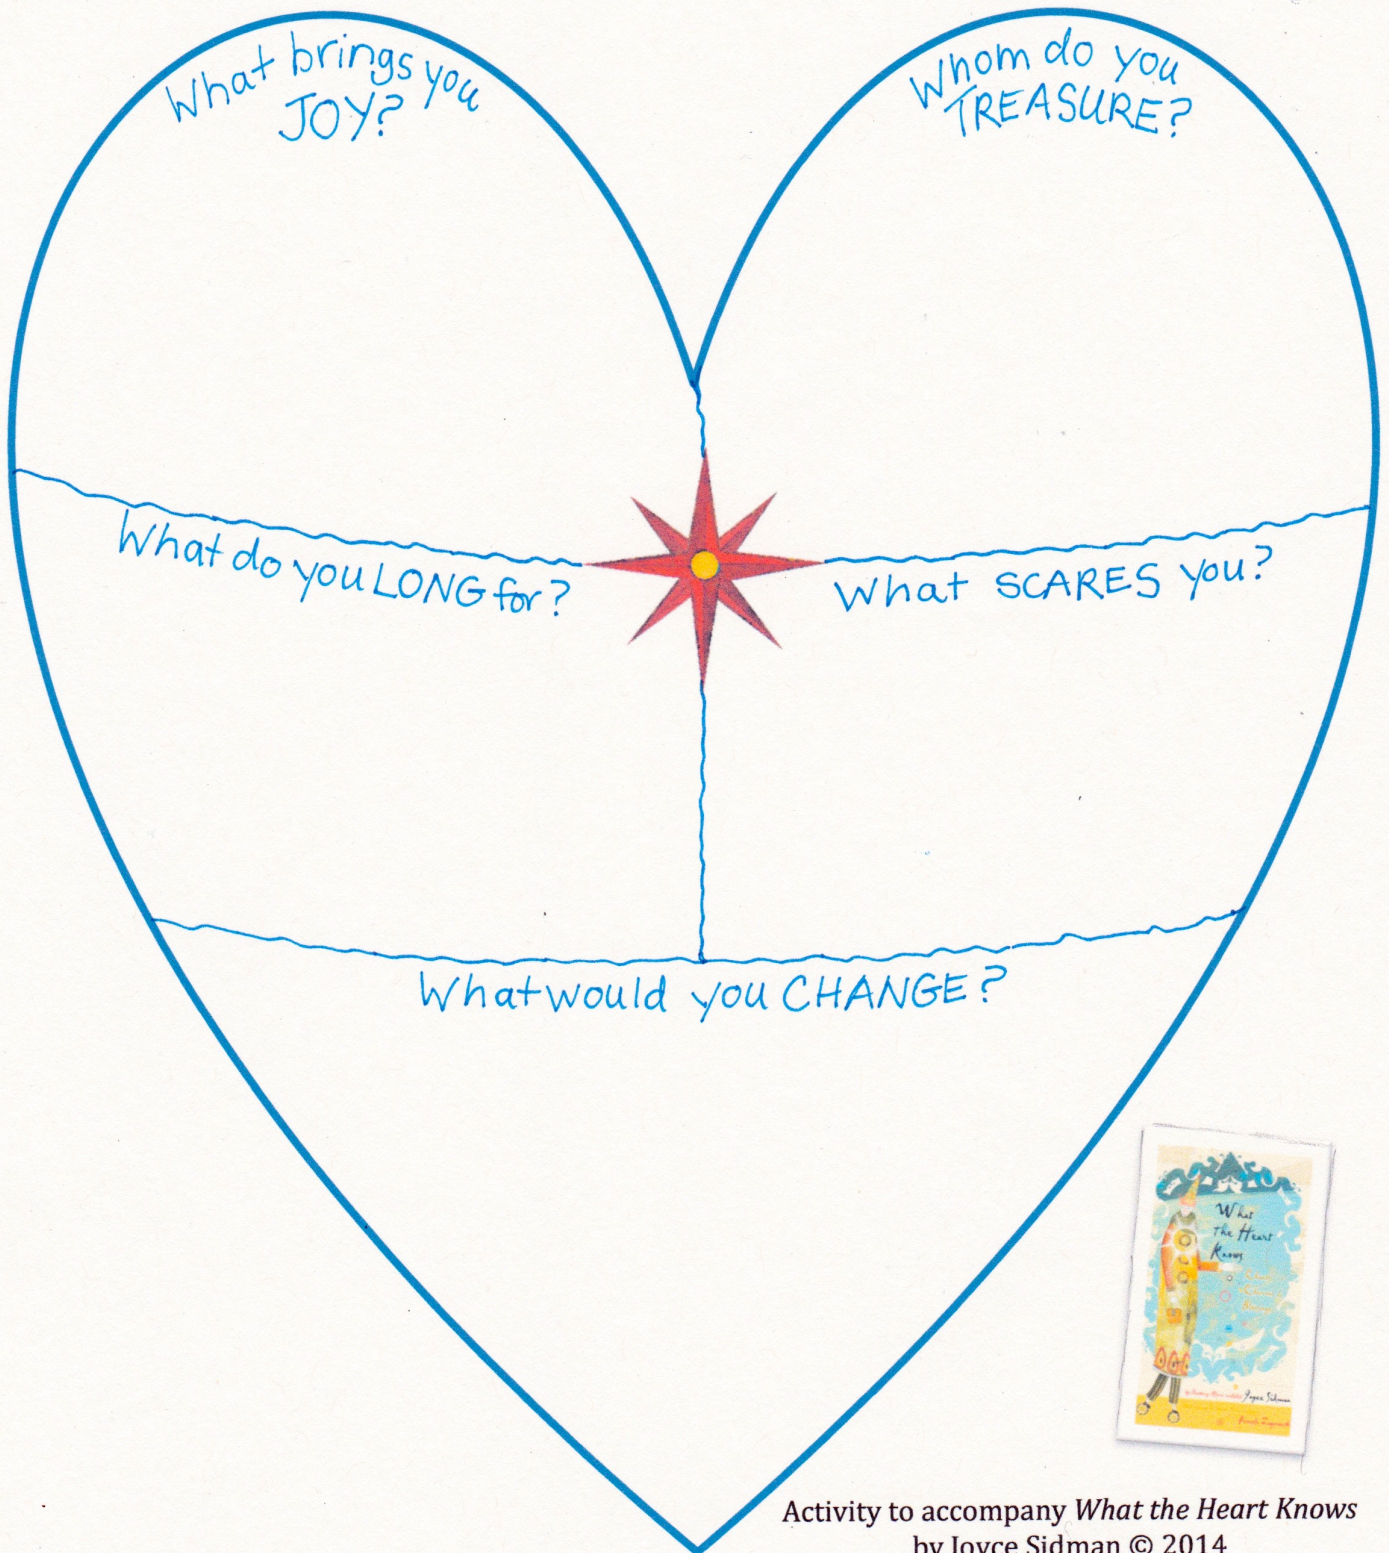 What brings you
JOY?
Whom do you
TREASURE?
What do you LONG for?
What SCARES you?
What would you CHANGE?
What
the Heart
Knows
Joyce Sidman
Activity to accompany What the Heart Knows
by Joyce Sidman © 2014